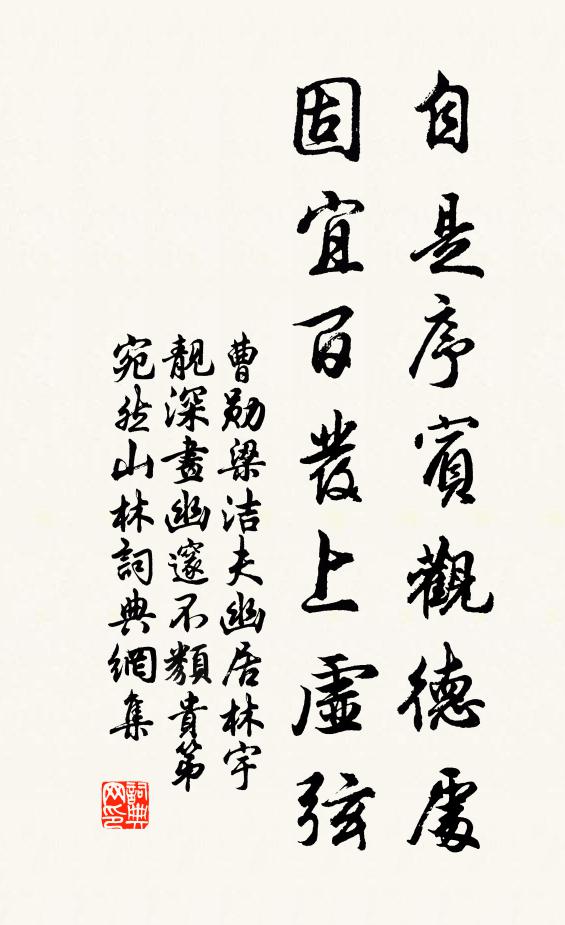 自是序賓觀德處
固宜百發上虛弦
曹勛梁洁夫幽居林宇
靓深畫幽邃不類貴第
宛然山林詞典網集
詞典网印